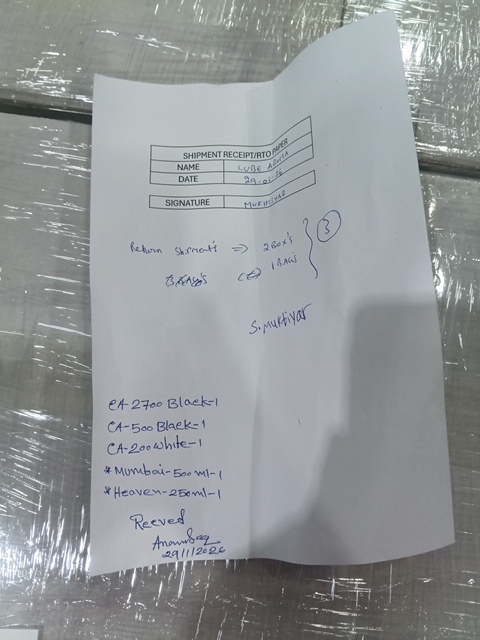 SHIPMENT RECEIPT/RTO PAPER
NAME LUBE AROMA
DATE 29-01-26
SIGNATURE MUKHIYAR
Return Shipment's => 2 BOX'S
1 BAG'S
3
S. Mukhiyar
CA-2700 Black-1
CA-500 Black-1
CA-200 White-1
*Mumbai-500ml-1
*Heaven-250ml-1
Reeved
29/1/2026